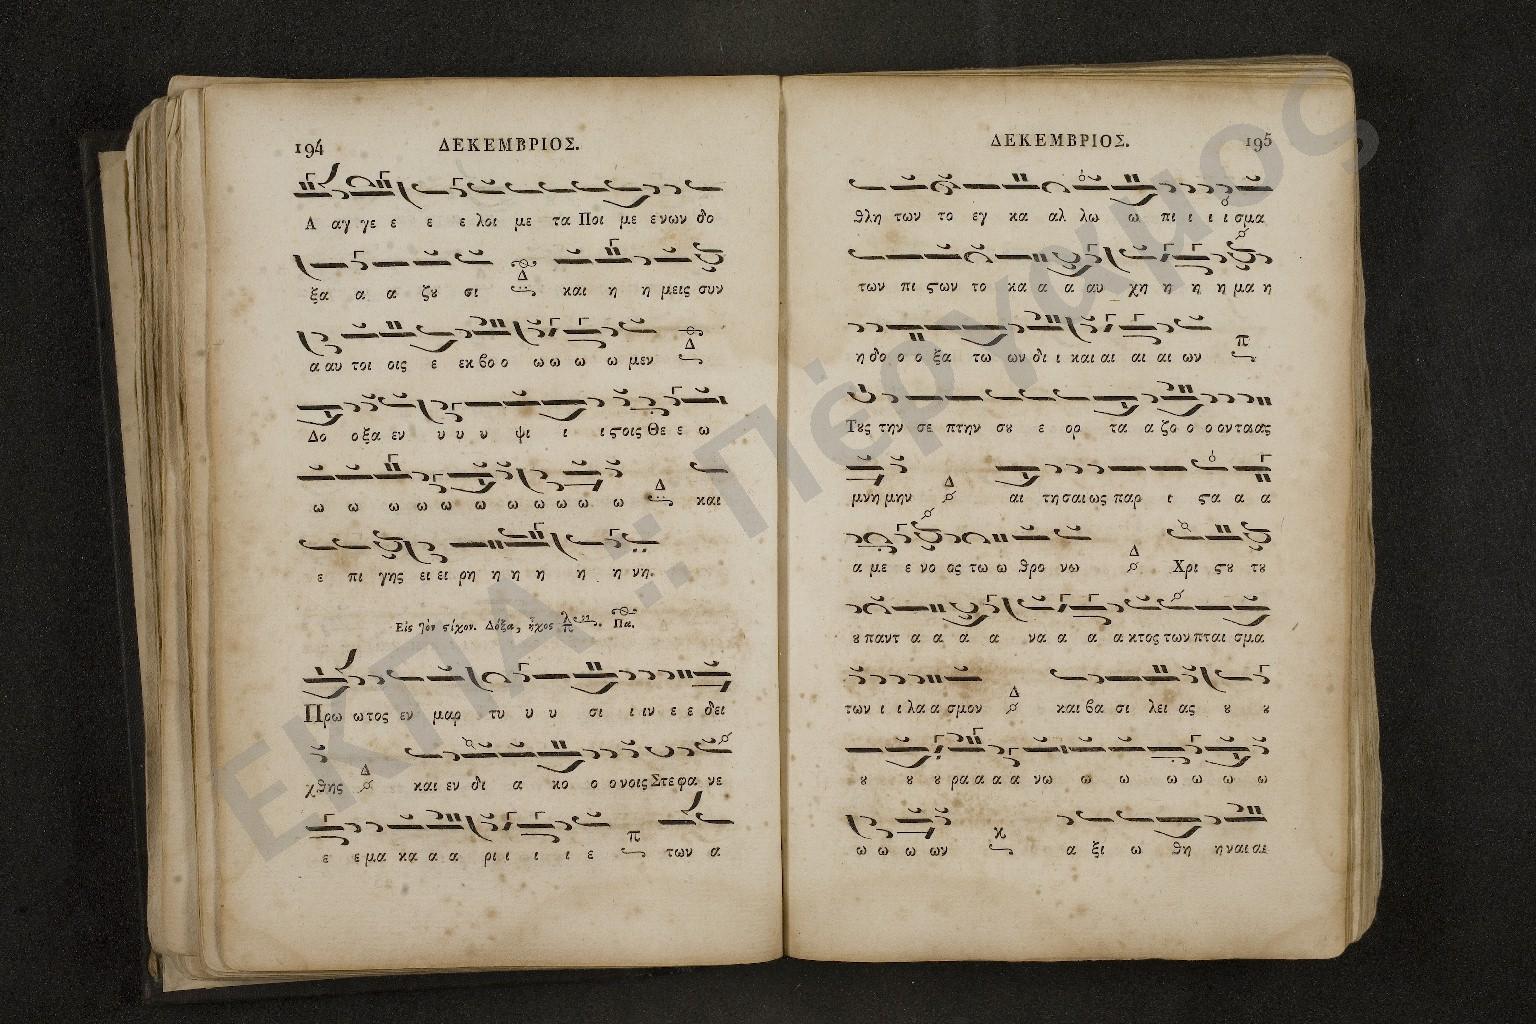 194
ΔΕΚΕΜΒΡΙΟΣ.
Α αγ γε ε ε ε λοι με τα Ποι με ενων δο
ξα α α ζȣ σι Δ και η η μεις συν
α αυ τοι οις ε εκ βο ο ω ω ω ω μεν Δ
Δο ο ξα εν υ υ υ ψι ι ι ϛοις Θε ε ω
ω ω ω ω ω ω ω ω ω ω ω ω Δ και
ε πι γης ει ει ρη η η η η η νη.
Εἰς τὸν ϛίχον. Δόξα, ἦχος Πα.
Πρω ω τος εν μαρ τυ υ υ σι ι ιν ε ε δει
χθης Δ και εν δι α κο ο ο νοις Στε φα νε
ε ε μα κα α α ρι ι ι ι ε π των α
ΔΕΚΕΜΒΡΙΟΣ.
195
θλη των το εγ κα αλ λω ω πι ι ι ι σμα
των πι ϛων το κα α α αυ χη η η η μα η
η δο ο ο ξα τω ων δι ι και αι αι αι ων π
Τȣς την σε πτην σȣ ε ορ τα α ζο ο ο οντα ας
μνη μην Δ αι τη σαι ως παρ ι ϛα α α
α με ε νο ος τω ω θρο νω Δ Χρι ϛȣ τȣ
ȣ παντ α α α α να α α α κτος των πται σμα
των ι ι λα α σμον Δ και βα σι λει ας ȣ ȣ
ȣ ȣ ȣ ρα α α α νω ω ω ω ω ω ω
ω ω ω ων κ α ξι ω θη η ναι αι
ΕΚΠΑ :: Πέργαμος